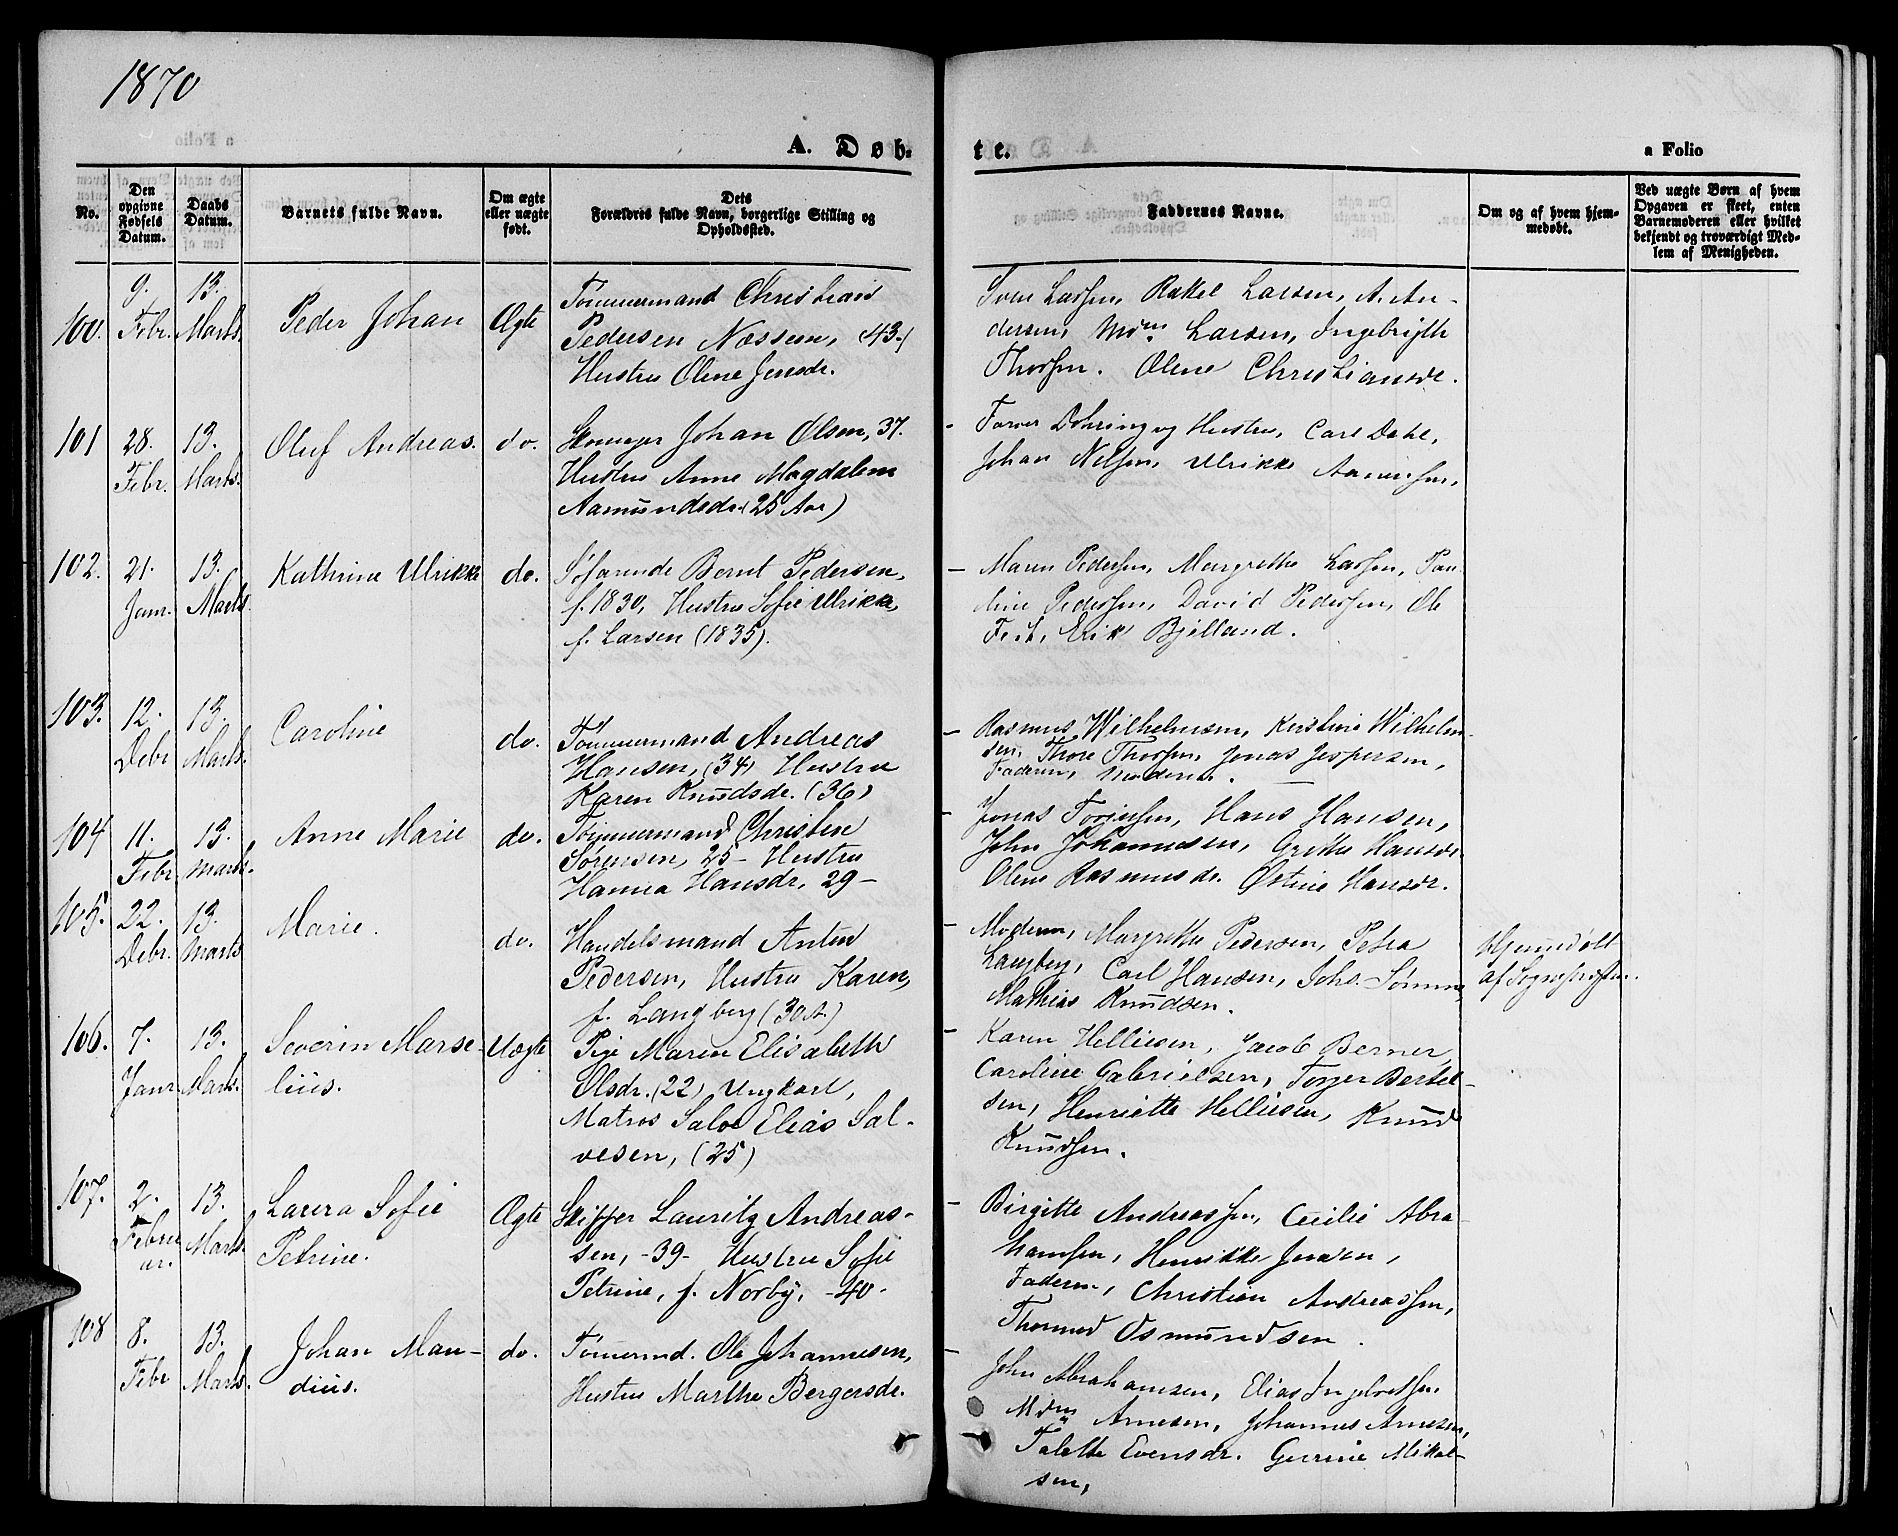 1870
A. Døb-
te.
a Folio
No.
Den opgivne Fødsels Datum.
Daabs Datum.
Barnets fulde Navn.
Om ægte eller uægte født.
Dets Forældres fulde Navn, borgerlige Stilling og Opholdssted.
Faddernes Navne.
Om og af hvem hjem-
medøbt.
Ved uægte Børn af hvem
Opgaven er skeet, enten
Barnemoderen eller hvilket
bekjendt og troværdigt Med-
lem af Menigheden.
100. 9. Febr. 13. Marts. Peder Johan Ægte
Tømmermand Christian
Pedersen Næssen, (43.)
Hustru Olene Jensdr.
Sven Larsen, Rakel Larsen, A. An-
dersen, Mdm. Larsen, Ingebrigth
Thorsen. Olene Christiansdr.
101 28. Febr. 13. Marts. Oluf Andreas. do.
Skomager Johan Olsen, 37.
Hustru Anne Magdalene
Aamundsdr. (25 Aar)
- Farver Døhring og Hustru, Carl Dahl,
Johan Nilsen, Ulrikke
102. 21. Janr. 13. Marts. Kathrine Ulrikke do.
Søfarende Bernt Pedersen,
f. 1830, Hustru Sofie Ulrikke,
f. Larsen (1835).
- Maren Pedersen, Margrethe Larsen, Pau-
line Pedersen, David Pedersen, Ole
Erik Bjelland.
103. 12. Debr. 13. Marts. Caroline do.
Tømmermand Andreas
Hansen, (34) Hustru
Karen Knudsdr. (36)
- Rasmus Wilhelmsen, Kirstine Wilhelm-
sen, Thore Thorsen, Jonas Jespersen,
Faderen, Moderen.
104 11. Febr. 13. Marts. Anne Marie do.
Tømmermand Christen
Sørensen, 25- Hustru
Hanna Hansdr. 29-
- Jonas Hans Hansen,
John Johannesen, Grethe Hansdr.
Olene Rasmusdr. Østine Hansdr.
105. 22. Debr. 13. Marts Marie. do.
Handelsmand Anton
Pedersen, Hustru Karen,
f. Langberg (30 A.)
- Moderen, Margrethe Pedersen, Petra
Langberg, Carl Hansen, Johs. Sømme,
Mathias Knudsen.
Hjemmedøbt
af Sognepresten.
106. 7. Janr. 13. Marts. Severin Marse-
lius. Uægte
Pige Maren Elisabeth
Olsdr. (22) Ungkarl,
Matros Salve Elias Sal-
vesen, (25)
- Karen Helliesen, Jacob Berner,
Caroline Gabrielsen, Torger Bertel-
sen, Henriette Helliesen, Knud
Knudsen.
107. 2. Febru-
ar. 13. Marts. Laura Sofie
Petrine. Ægte
Skipper Lauritz Andreas-
sen, -39- Hustru Sofie
Petrine, f. Norby, -40-
- Birgitte Andreassen, Cecilie Abra-
hamsen, Henrikke Jensen,
Faderen, Christian Andreassen,
Thormod Osmundsen.
108 8. Febr 13. Marts. Johan Mau-
dius. do.
Tømmermd. Ole Johannesen,
Hustru Marthe Bergersdr.
- John Abrahamsen, Elias
Mdm Arnesen, Johannes Arnesen,
Talette Evensdr. Gurine Mikal-
sen,